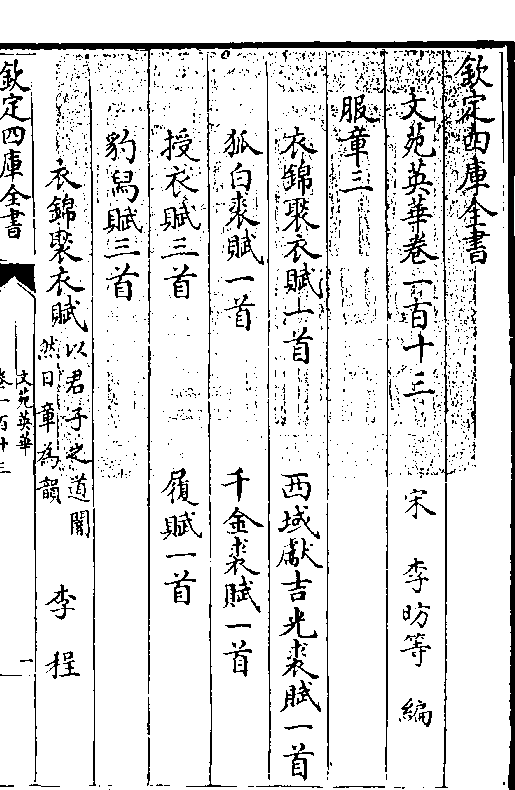 欽定四庫全書
文苑英華卷一百十三
宋 李昉等 編
服章三
衣錦褧衣賦一首 西域獻吉光裘賦一首
狐白裘賦一首 千金裘賦一首
授衣賦三首 履賦一首
豹舄賦三首
衣錦褧衣賦 以君子之道闇然日章為韻 李程
欽定四庫全書
文苑英華
卷一百十三
一